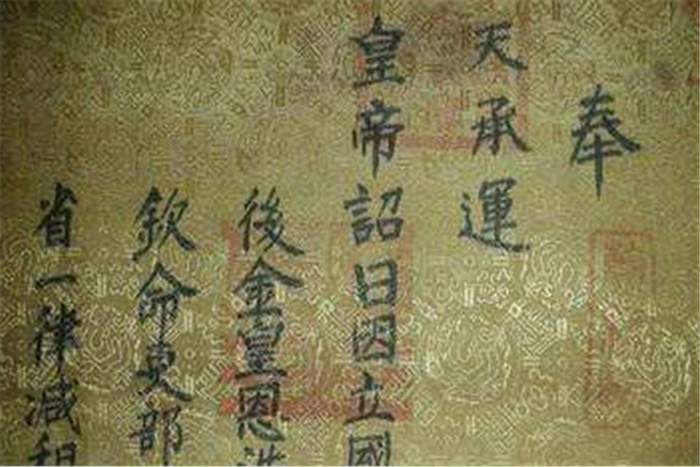 奉
天承運
皇帝詔曰因立國
後金皇恩浩
欽命吏部
省一律減租